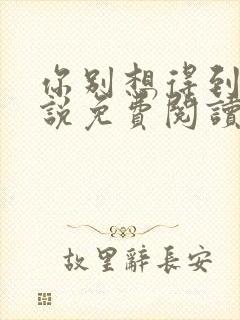 你别想得到
說免費閱讀
故里辭長安